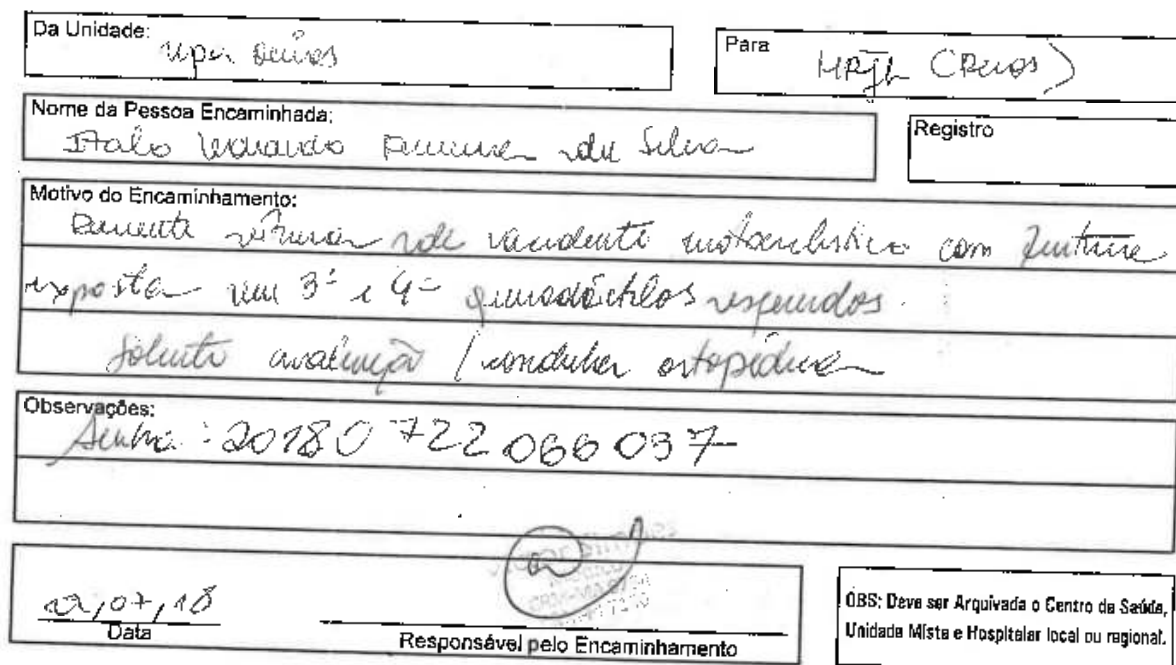 Da Unidade:
Upa
Para
HRJL
Nome da Pessoa Encaminhada:
Italo da Silva
Registro
Motivo do Encaminhamento:
Paciente vítima de acidente motociclístico com fratura
exposta em 3º e 4º quirodáctilos esquerdos.
Solicito avaliação / conduta ortopédica
Observações:
Senha: 20180722066037
22/07/18
Data
Responsável pelo Encaminhamento
OBS: Deve ser Arquivada o Centro de Saúde,
Unidade Mista e Hospitalar local ou regional.